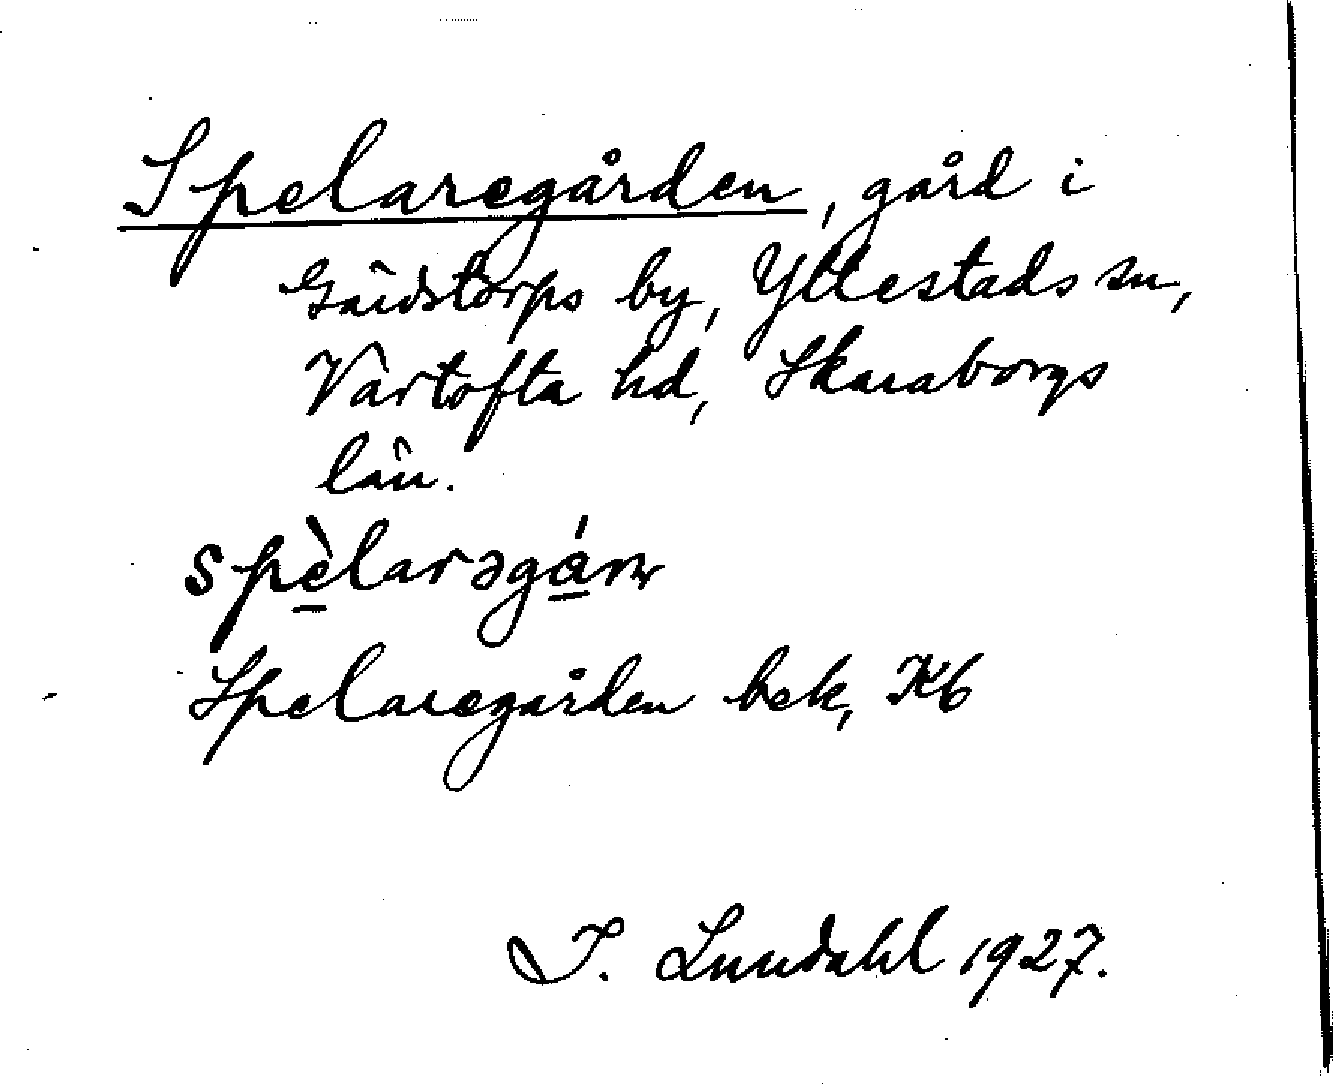 Spelaregården, gård i
Gäidstorps by, Yllestads sn,
Vartofta hd, Skaraborgs
län.
spèlarəgán
Spelaregården bek, Kb
I. Lundahl 1927.